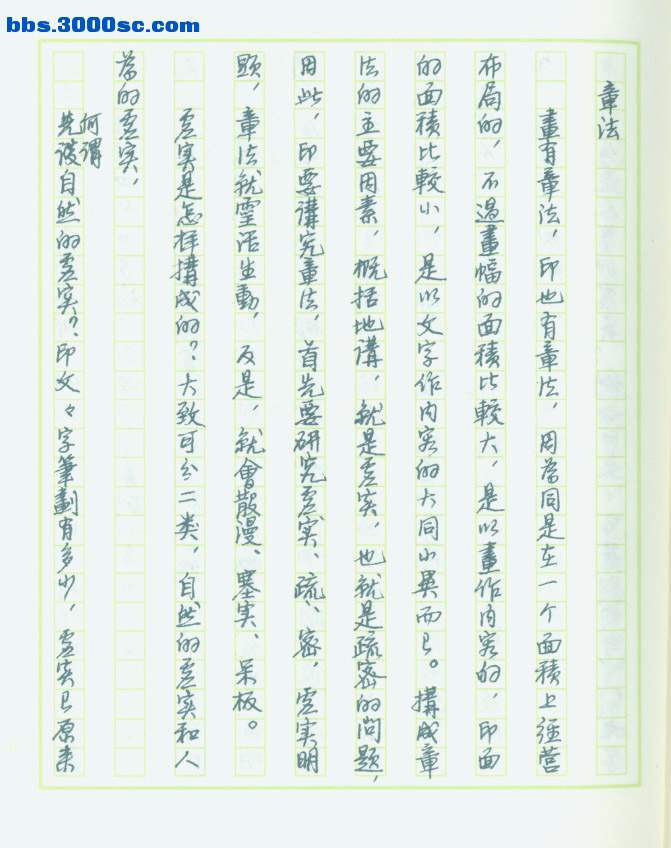 bbs.3000sc.com
章法
畫有章法，印也有章法，因為同是在一个面積上經营
布局的，不過畫幅的面積比較大，是以畫作内容的，印面
的面積比較小，是以文字作内容的大同小異而已。搆成章
法的主要因素，概括地講，就是虚实，也就是疏密的问题，
因此，印要講究章法，首先要研究虚实、疏、密，虚实明
顕，章法就靈活生動，反是，就會散漫、塞实、呆板。
虚实是怎样搆成的？大致可分二类，自然的虚实和人
為的虚实，
何谓
先谈自然的虚实？印文文字筆劃有多少，虚实已原来